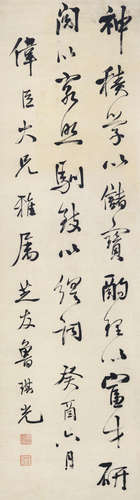 神積學以儲寶酌理以富才研
閱以窮照馴致以繹詞癸酉六月
偉臣大兄雅屬芝友魯琪光